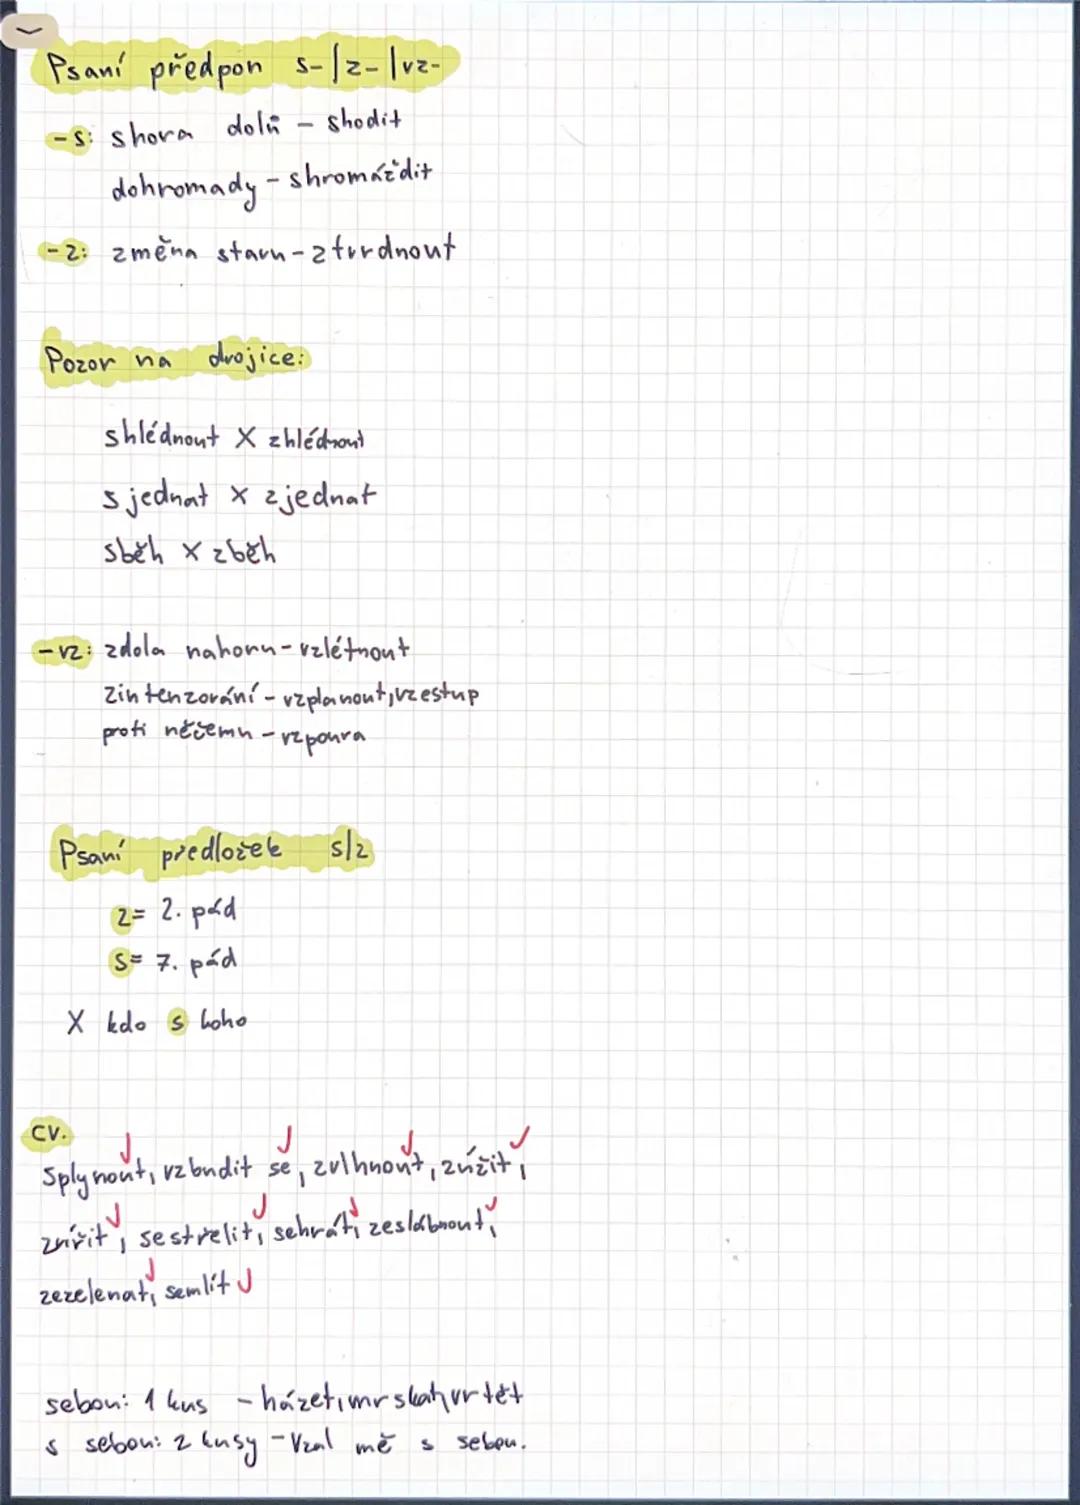 Psaní předpon s-/z-/vz-
-s: shora dolů - shodit
dohromady - shromáždit
-z: změna stavu - ztvrdnout
Pozor na dvojice:
shlédnout X zhlédnout
sjednat X zjednat
sběh X zběh
-vz: zdola nahoru - vzlétnout
zintenzování - vzplanout, vzestup
proti něčemu - vzpoura
Psaní předložek s/z
z = 2. pád
s = 7. pád
X kdo s koho
CV.
splynout, vzbudit se, zvlhnout, zúžit,
zvířit, sestřelit, sehrát, zeslábnout,
zezelenat, semlít
sebou: 1 kus - házet, mrskat, vrtět
s sebou: 2 kusy - Vzal mě s sebou.